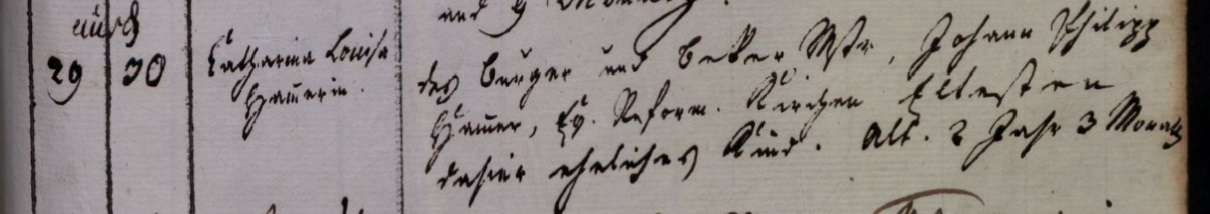 und 9 Monath
auch
29 30 Catharina Louisa
des burger und becker Mstr. Johann Philipp
Hamerin.
Hamer, Ev. Reform. Kirchen Eltesten
dahier eheliches Kind. alt. 2 Jahr 3 Monath